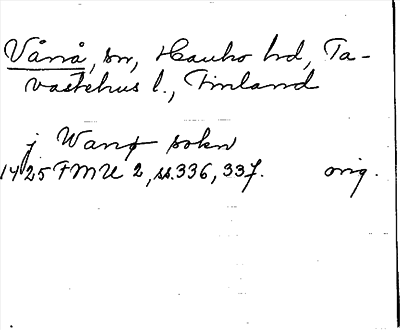 Vånå, sn, Hauho hd, Ta-
vastehus l., Finland
j Wanø sokn
1425 FMU 2, ss. 336, 337. orig.